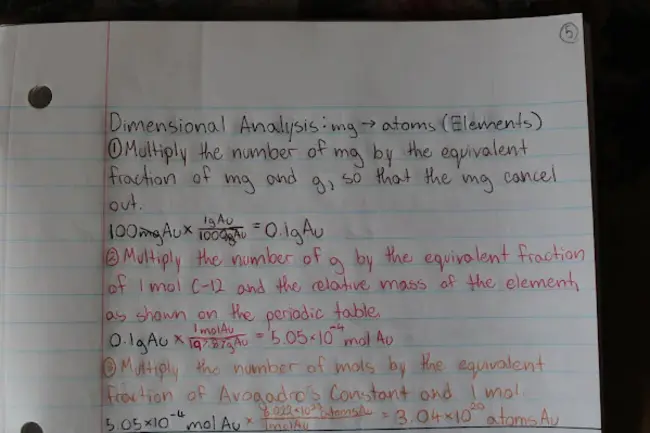 5
Dimensional Analysis: mg → atoms (Elements)
① Multiply the number of mg by the equivalent
fraction of mg and g, so that the mg cancel
out.
100mgAu × 1gAu/1000mgAu = 0.1gAu
② Multiply the number of g by the equivalent fraction
of 1 mol C-12 and the relative mass of the element,
as shown on the periodic table.
0.1gAu × 1molAu/gAu = 5.05×10⁻⁴ mol Au
③ Multiply the number of mols by the equivalent
fraction of Avogadro's Constant and 1 mol.
5.05×10⁻⁴ mol Au × 6.022×10²³ atomsAu/1molAu = 3.04×10²⁰ atoms Au